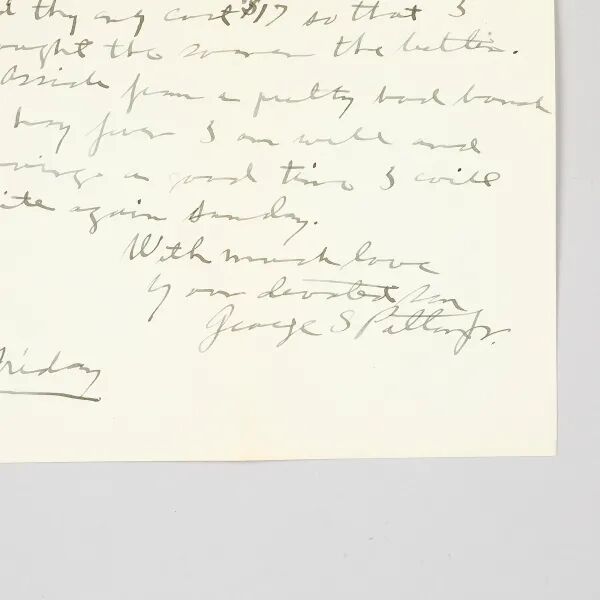 d thy any cost $17 so that I
ought the sooner the better.
Asside from a pretty bad bout
hay fever I am well and
aving a good time I will
ite again Sunday.
With much love
Your devoted son
George S Patton Jr.
Friday